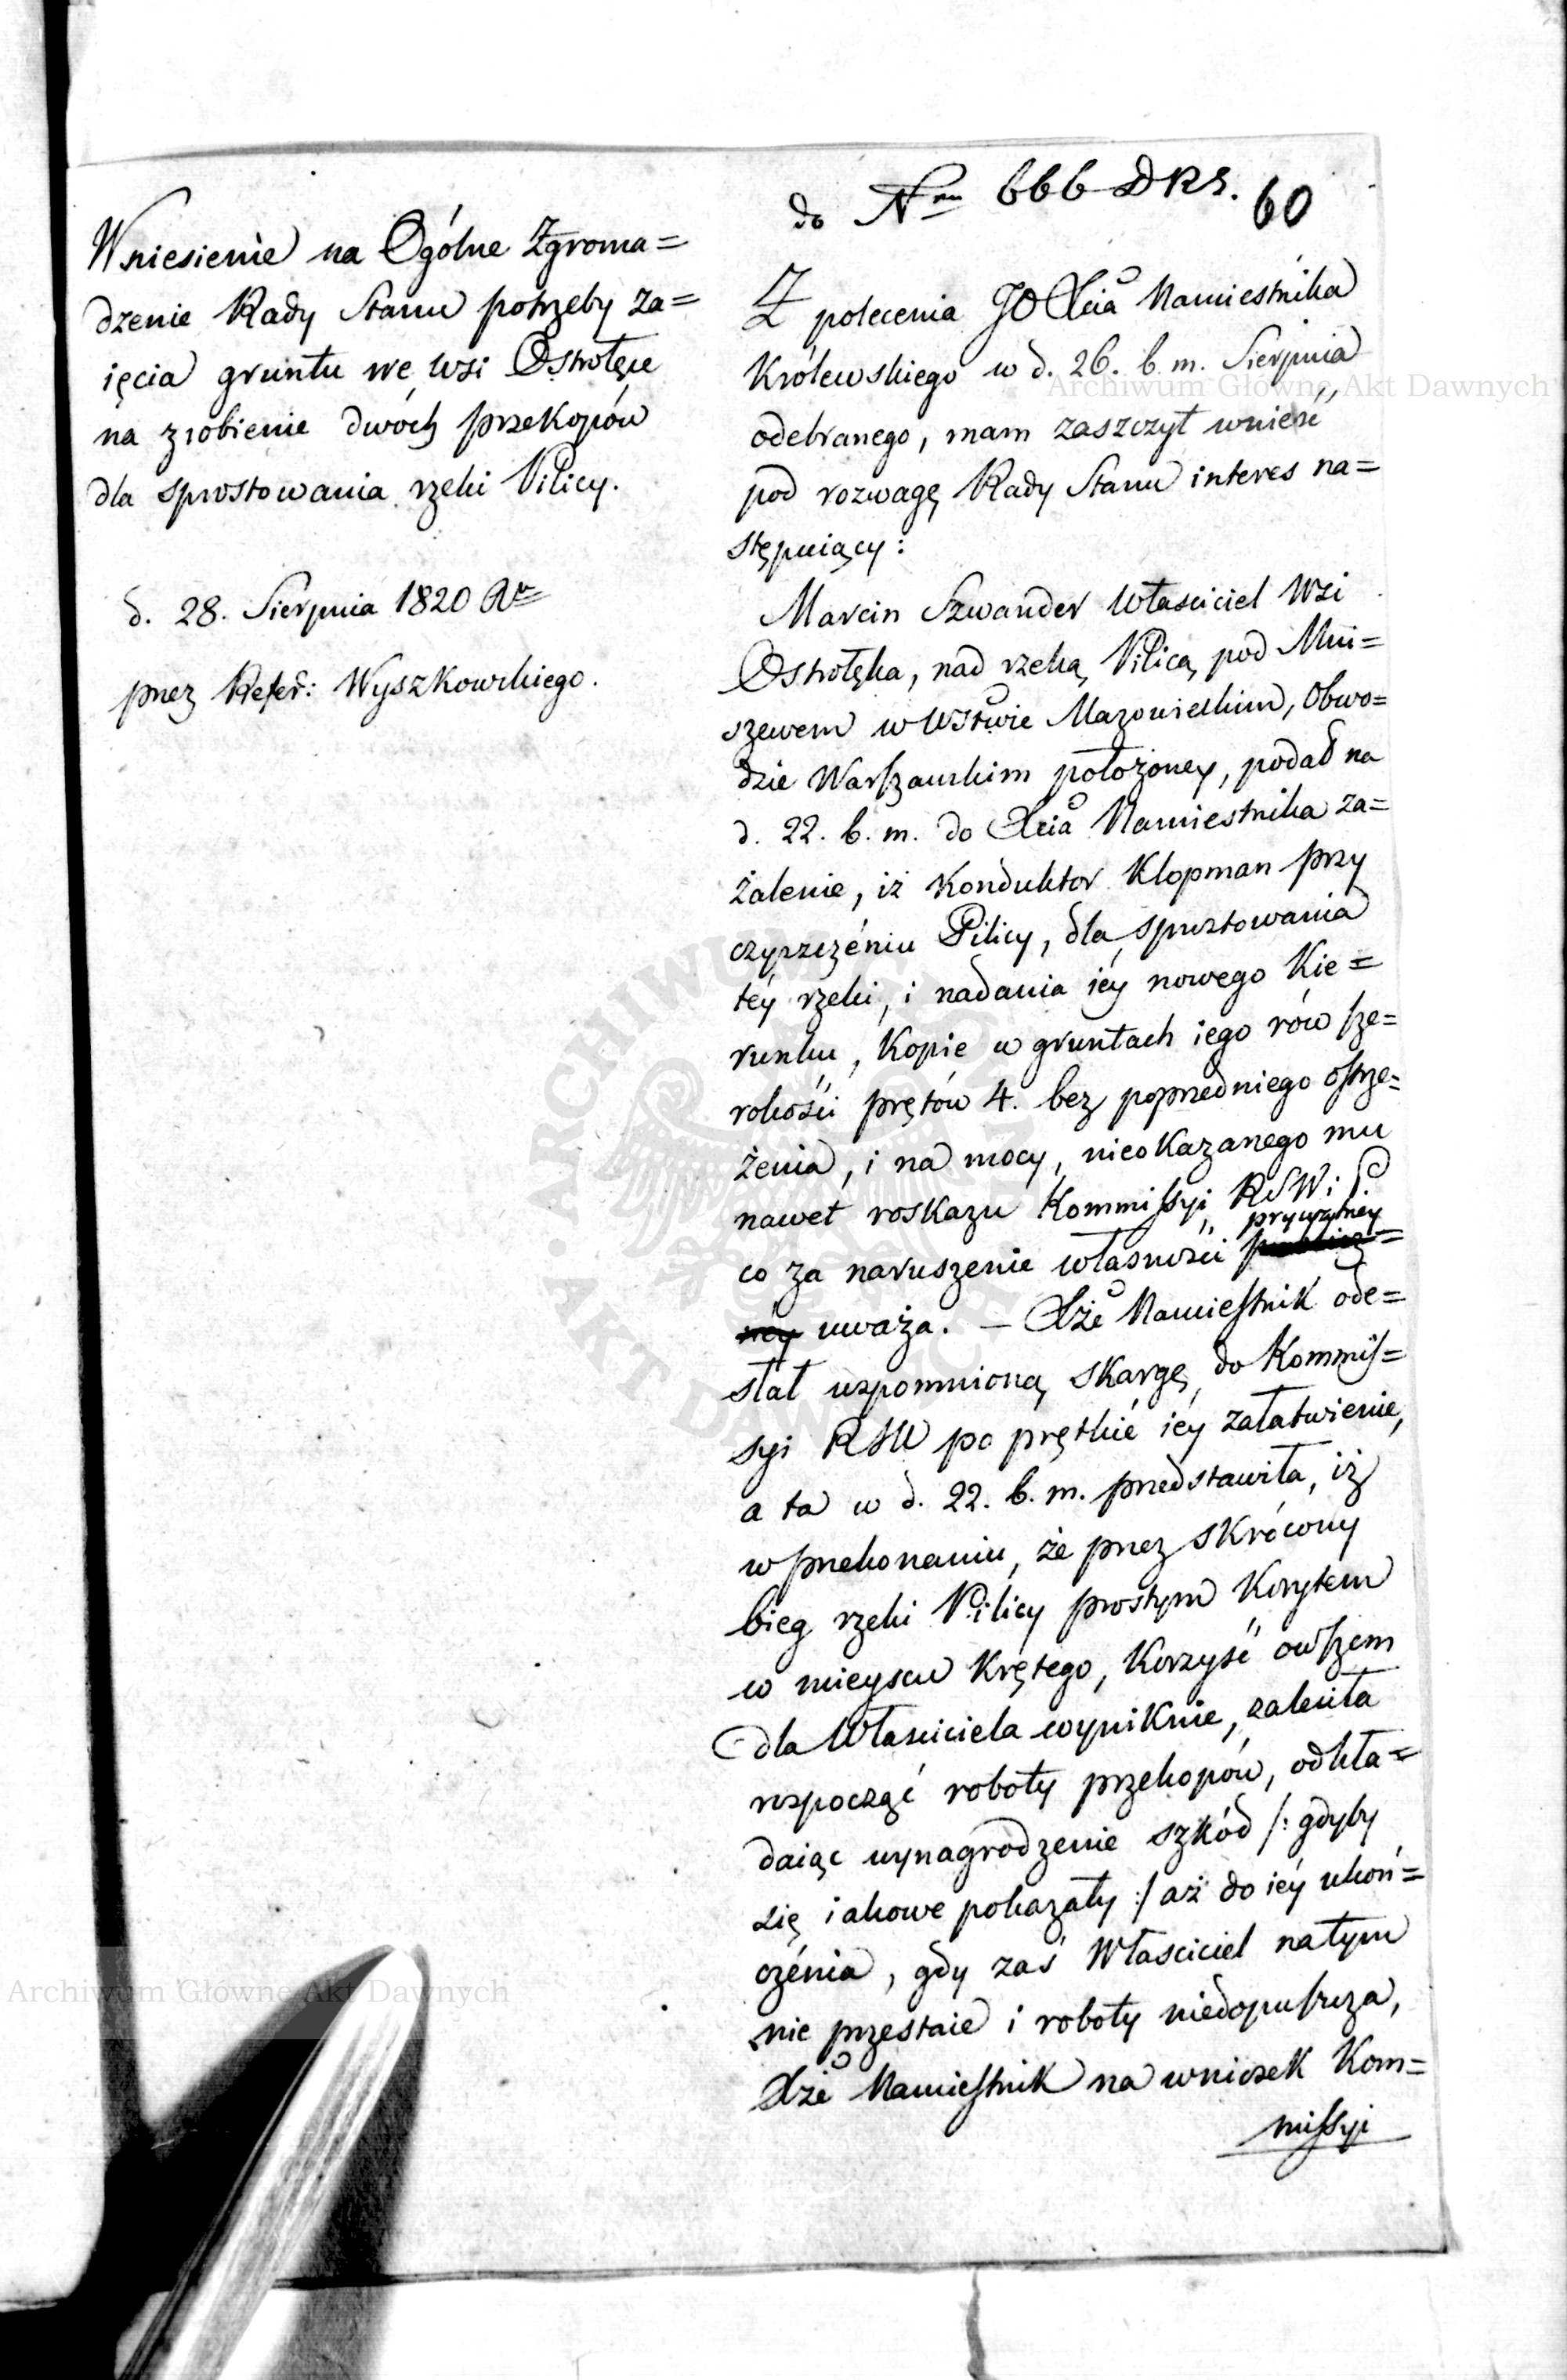 do Nru 666 DRS. 60
Wniesienie na Ogólne Zgroma=
dzenie Rady Stanu potrzeby za=
ięcia gruntu we wsi Ostrołęce
na zrobienie dwóch przekopów
dla sprostowania rzeki Pilicy.
d. 28. Sierpnia 1820 Ru
przez Refer: Wyszkowskiego.
Z polecenia JO Xcia Namiestnika
Królewskiego w d. 26. b. m. Sierpnia
odebranego, mam zaszczyt wnieść
pod rozwagę Rady Stanu interes na=
stępuiący:
Marcin Szwander Własciciel Wsi
Ostrołęka, nad rzeką Pilicą pod Mni=
szewem w Wstwie Mazowieckim, Obwo=
dzie Warszawskim położoney, podał na
d. 22. b. m. do Xcia Namiestnika za=
żalenie, iż Konduktor Klopman przy
czyszczéniu Pilicy, dla sprostowania
téy rzeki, i nadania iéy nowego Kie=
runku, Kopie w gruntach iego rów sze=
rokości prętów 4. bez poprzedniego ostrze=
żenia, i na mocy, nieokazanego mu
nawet roskazu Kommissyi RSW i P.
prywatney
co za naruszenie własności publicz=
néy uważa. — Xże Namiestnik ode=
słał wspomnioną skargę do Kommis=
syi RSW po prętkié iéy załatwienie,
a ta w d. 22. b. m. przedstawiła, iż
w przekonaniu, że przez skrócony
bieg rzeki Pilicy prostym Korytem
w mieyscu Krętego, Korzyść owszem
dla Własciciela wyniknie, zaleciła
rospocząć roboty przekopów, odkła=
daiąc wynagrodzenie szkód /: gdyby
się iakowe pokazały :/ aż do iéy ukoń=
czénia, gdy zaś Własciciel na tym
nie przestaie i roboty niedopuszcza,
Xże Namiestnik na wniosek Kom=
missyi
Archiwum Główne Akt Dawnych
Archiwum Główne Akt Dawnych
ARCHIWUM GŁÓWNE AKT DAWNYCH